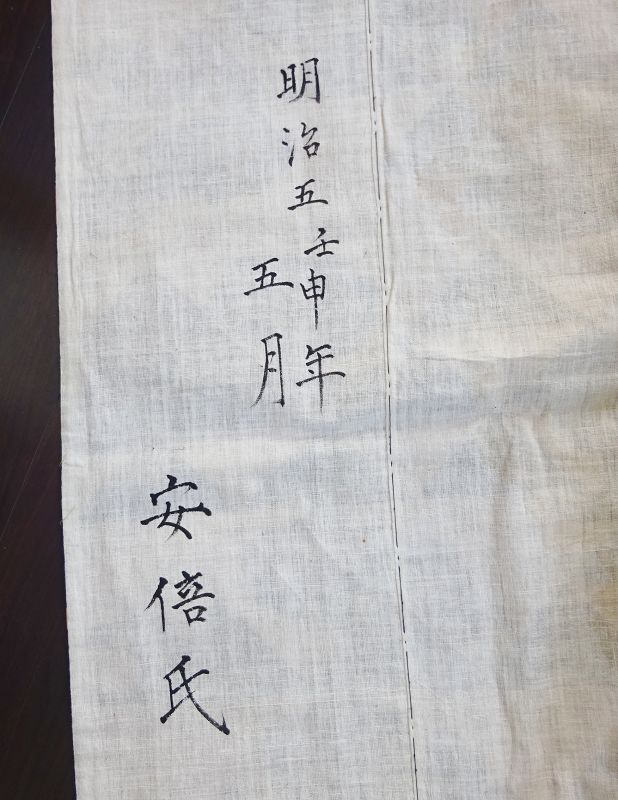 明治五壬申年
五月
安倍氏